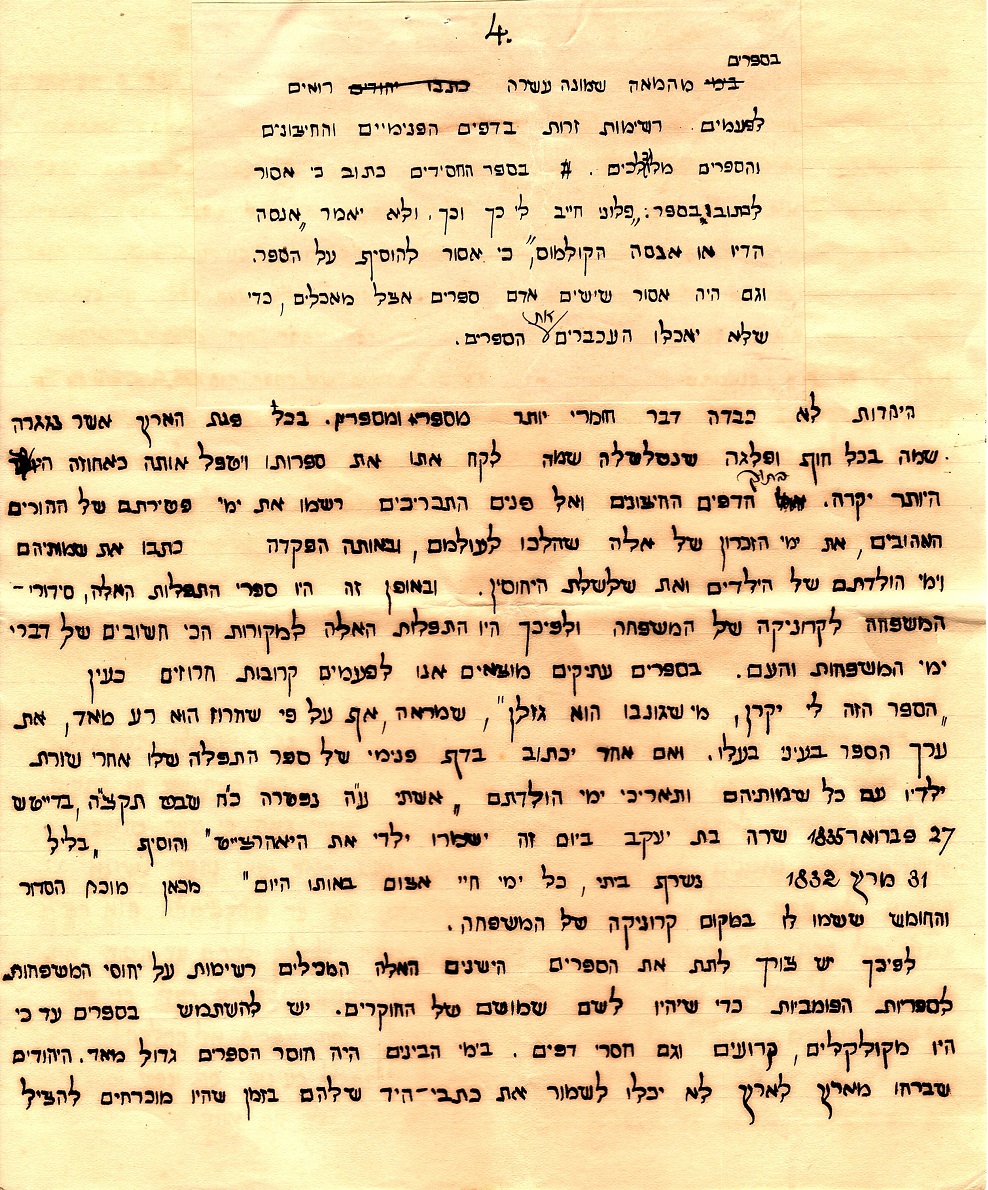 4.
בספרים
בימי מהמאה שמונה עשרה כתבו יהודים רואים
לפעמים רשימות זרות בדפים הפנימיים והחיצונים
והספרים מלוכלכים. בספר החסידים כתוב כי אסור
לכתוב בספר: „פלוני חייב לי כך וכך, ולא יאמר „אנסה
הדיו או אנסה הקולמוס", כי אסור להוסיף על הספר.
וגם היה אסור שישים אדם ספרים אצל מאכלים, כדי
שלא יאכלו העכברים את הספרים.
היהדות לא כבדה דבר חומרי יותר מספרא ומספרא. בכל פנת הארץ אשר נגררה
שמה בכל חוף ופלגה שנשלשלה שמה לקח אתו את ספרותו ויטפל אותה כאחוזה
היותר יקרה. בתוך הדפים החיצונים ואל פנים התכריכים רשמו את ימי פטירתם של ההורים
האהובים, את ימי הזכרון של אלה שהלכו לעולמם, ובאותה הפקדה כתבו את שמותיהם
וימי הולדתם של הילדים ואת שלשלת היחוסין. ובאופן זה היו ספרי התפלות האלה, סידורי-
המשפחה לקרוניקה של המשפחה ולפיכך היו התפלות האלה למקורות הכי חשובים של דברי
ימי המשפחות והעם. בספרים עתיקים מוצאים אנו לפעמים קרובות חרוזים כעין
„הספר הזה לי יקרן, מי שגונבו הוא גזלן", שמראה, אף על פי שחרוז הוא רע מאד, את
ערך הספר בעיני בעלו. ואם אחד יכתוב בדף פנימי של ספר התפלה שלו אחרי שורת
ילדיו עם כל שמותיהם ותאריכי ימי הולדתם „אשתי ע"ה נפטרה כ"ח שבט תקצ"ה, בדייטש
27 פברואר 1835 שרה בת יעקב ביום זה ישמרו ילדי את היאהרצייט" והוסיף „בליל
31 מרץ 1832 נשרף ביתי, כל ימי חיי אצום באותו היום" מכאן מוכח הסדור
והחומש ששמו לא במקום קרוניקה של המשפחה.
לפיכך יש צורך לתת את הספרים הישנים האלה המכילים רשימות על יחוסי המשפחות
לספריות הפומביות כדי שיהיו לשם שמושם של החוקרים. יש להשתמש בספרים עד כי
היו מקולקלים, קרועים וגם חסרי דפים. בימי הבינים היה חוסר הספרים גדול מאד. היהודים
שברחו מארץ לארץ לא יכלו לשמור את כתבי-היד שלהם בזמן שהיו מוכרחים להציל